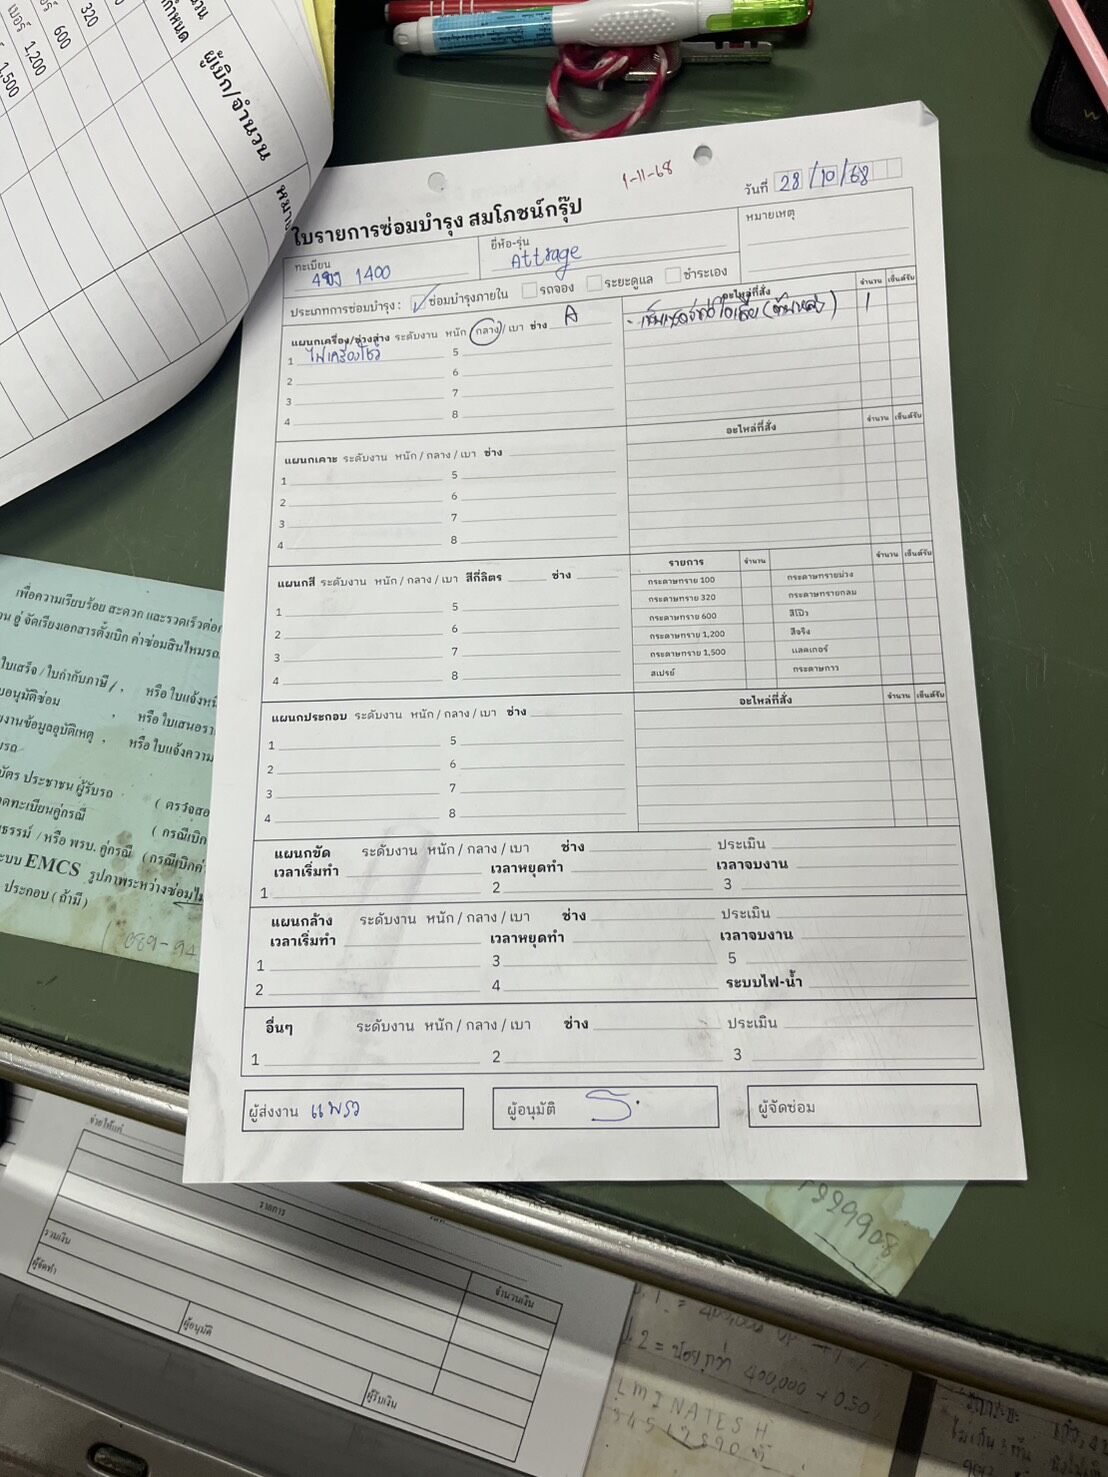 1-11-68
วันที่ 28/10/68
ใบรายการซ่อมบำรุง สมโภชน์กรุ๊ป
ทะเบียน 1400
ยี่ห้อ-รุ่น Attrage
หมายเหตุ
ประเภทการซ่อมบำรุง : ✓ ซ่อมบำรุงภายใน รถจอง ระยะดูแล ชำระเอง
แผนกเครื่อง/ช่างล่าง ระดับงาน หนัก (กลาง) / เบา ช่าง A
อะไหล่ที่สั่ง จำนวน เซ็นต์รับ
1 ไฟเครื่องโชว์ 5
1
2 6
3 7
4 8
แผนกเคาะ ระดับงาน หนัก / กลาง / เบา ช่าง
อะไหล่ที่สั่ง จำนวน เซ็นต์รับ
1 5
2 6
3 7
4 8
แผนกสี ระดับงาน หนัก / กลาง / เบา สีกี่ลิตร ช่าง
1 5
2 6
3 7
4 8
รายการ จำนวน จำนวน เซ็นต์รับ
กระดาษทราย 100 กระดาษทรายม่วง
กระดาษทราย 320 กระดาษทรายกลม
กระดาษทราย 600 สีโป๊ว
กระดาษทราย 1,200 สีจริง
กระดาษทราย 1,500 แลคเกอร์
สเปรย์ กระดาษกาว
แผนกประกอบ ระดับงาน หนัก / กลาง / เบา ช่าง
อะไหล่ที่สั่ง จำนวน เซ็นต์รับ
1 5
2 6
3 7
4 8
แผนกขัด ระดับงาน หนัก / กลาง / เบา ช่าง ประเมิน
เวลาเริ่มทำ เวลาหยุดทำ เวลาจบงาน
1 2 3
แผนกล้าง ระดับงาน หนัก / กลาง / เบา ช่าง ประเมิน
เวลาเริ่มทำ เวลาหยุดทำ เวลาจบงาน
1 3 5
2 4 ระบบไฟ-น้ำ
อื่นๆ ระดับงาน หนัก / กลาง / เบา ช่าง ประเมิน
1 2 3
ผู้ส่งงาน แพรว
ผู้อนุมัติ
ผู้จัดซ่อม
ผู้เบิก/จำนวน
กำหนด
320
เบอร์ 600
เบอร์ 1,200
1,500
เพื่อความเรียบร้อย สะดวก และรวดเร็วต่อ
อู่ จัดเรียงเอกสารตั้งเบิก ค่าซ่อมสินไหม
ใบเสร็จ / ใบกำกับภาษี / , หรือ
อนุมัติซ่อม , หรือ
งานข้อมูลอุบัติเหตุ , หรือ ใบแจ้งความ
บัตร ประชาชน ผู้รับรถ
ทะเบียนคู่กรณี
/ หรือ พรบ. คู่กรณี
EMCS รูปภาพระหว่างซ่อม
ประกอบ ( ถ้ามี )
089-94
จ่ายให้แก่
รายการ จำนวนเงิน
รวมเงิน
ผู้จัดทำ ผู้อนุมัติ ผู้รับเงิน
2 = น้อยกว่า 400,000 + 0.50